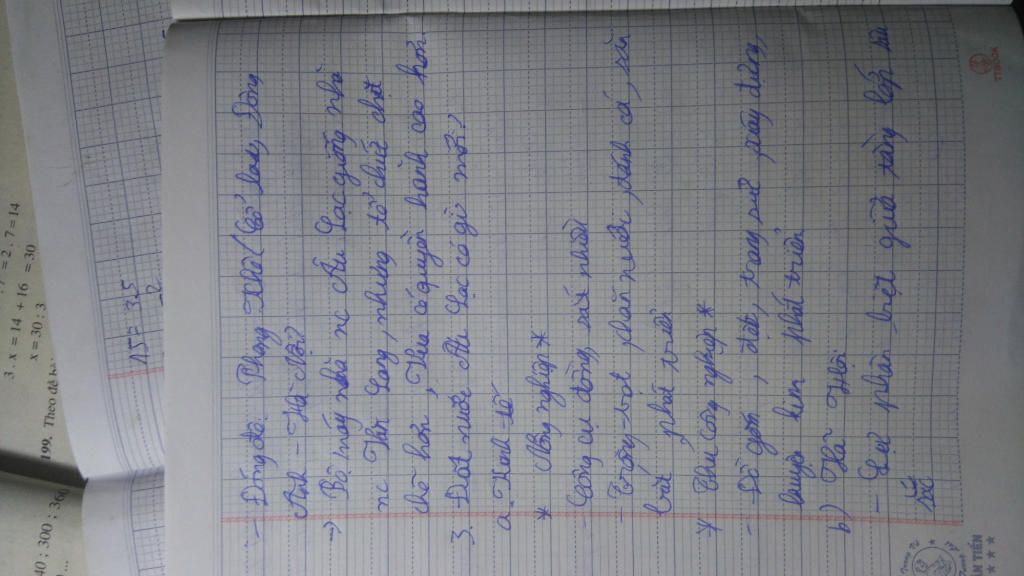 3 . x = 14 + 16 = 30
x = 30 : 3
. 7 = 2 . 7 = 14
199. Theo đề bà
40 ; 300 ; 360
15 = 325
- Đóng đô: Phong Khê (Cổ Loa, Đông
Anh - Hà Nội)
→ Bộ máy nhà nc Âu Lạc giống nhà
nc Văn Lang, nhưng tổ chức chặt
chẽ hơn, Vua có quyền hành cao hơn
3. Đất nước Âu Lạc có gì mới?
a. Kinh tế
* Nông nghiệp *
- Công cụ đồng, sắt nhiều
- Trồng trọt, chăn nuôi, đánh cá, săn
bắt phát triển
* Thủ công nghiệp *
- Đồ gốm, dệt, trang sức, xây dựng,
luyện kim phát triển
b) Xã Hội
- Sự phân biệt giữa tầng lớp sâu
sắc
TIẾN